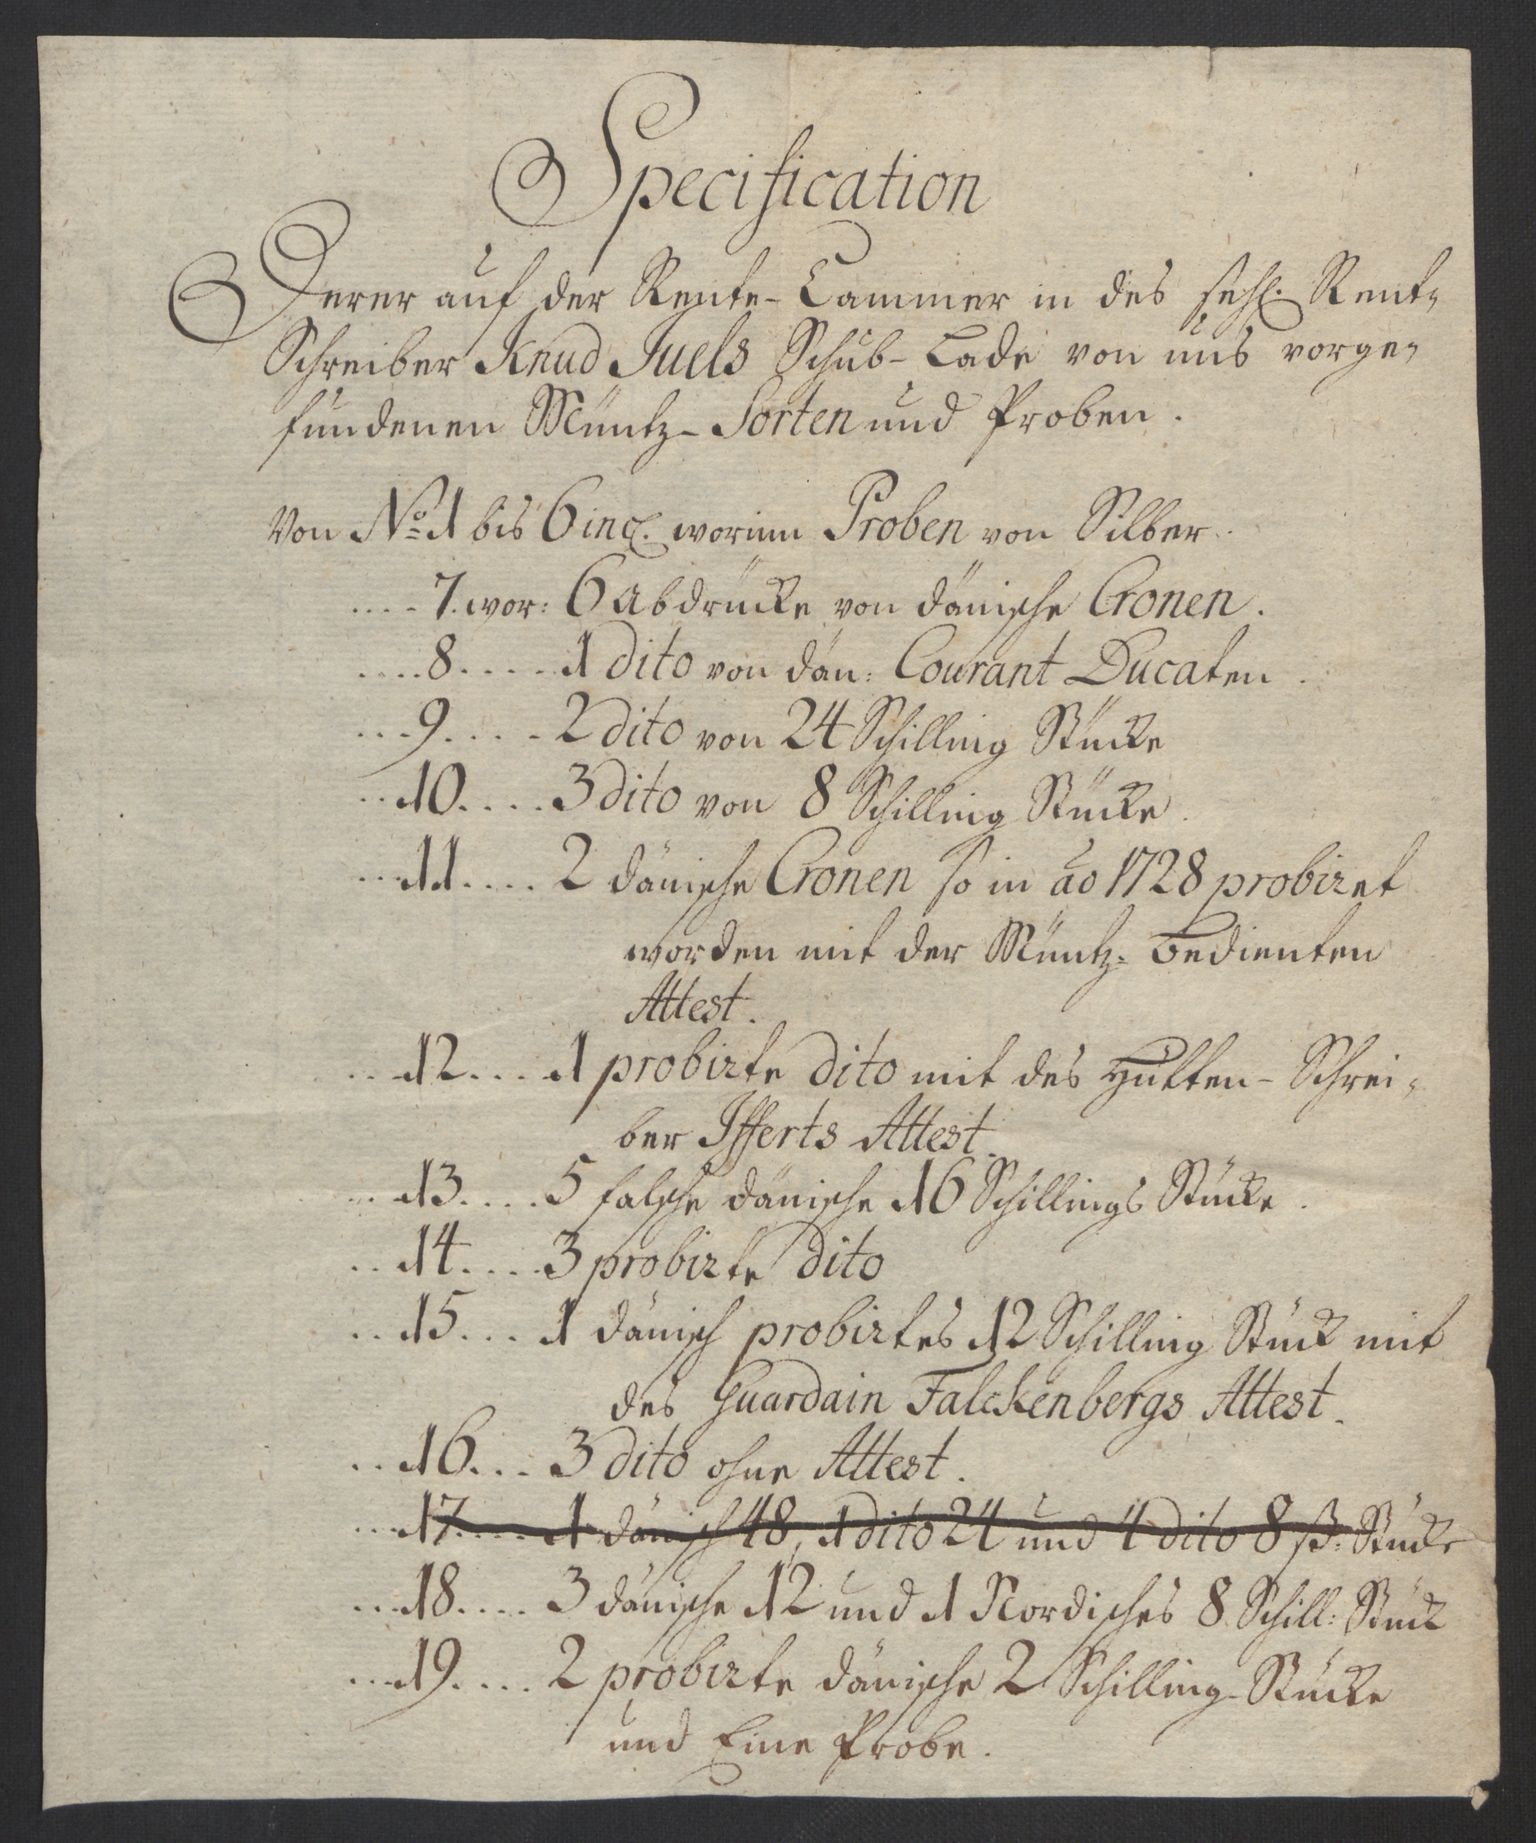 Specification
Derer auf der Rente-Cammer in des sehl. Rent-
Schreiber Knud Juels Schub-Lade von uns vorge-
fundenen Müntz-Sorten und Proben.
Von No. 1 bis 6 incl. worinn Proben von Silber.
.... 7. wor: 6 abdrücke von dänische Cronen.
.... 8. .... 1 dito von dän: Courant Ducaten.
... 9. .... 2 dito von 24 Schilling Stücke
.. 10. .... 3 dito von 8 Schilling Stücke.
... 11. .... 2 dänische Cronen so in ao 1728 probiret
worden mit der Müntz-bedienten
Attest.
.. 12. ... 1 probirte dito mit des Hütten-Schrei-
ber Ifferts Attest.
.. 13. .... 5 falsche dänische 16 Schillings Stücke.
.. 14. .... 3 probirte dito
.. 15. ... 1 dänisch probirtes 12 Schilling Stück mit
des Guardain Falckenbergs Attest.
.. 16. ... 3 dito ohne Attest.
... 17. .... 1 dänisch 48, 1 dito 24 und 4 dito 8 ß: Stücke
... 18. .... 3 dänische 12 und 1 Nordisches 8 Schill: Stück
... 19. .... 2 probirte dänische 2 Schilling-Stücke
und Eine Probe.